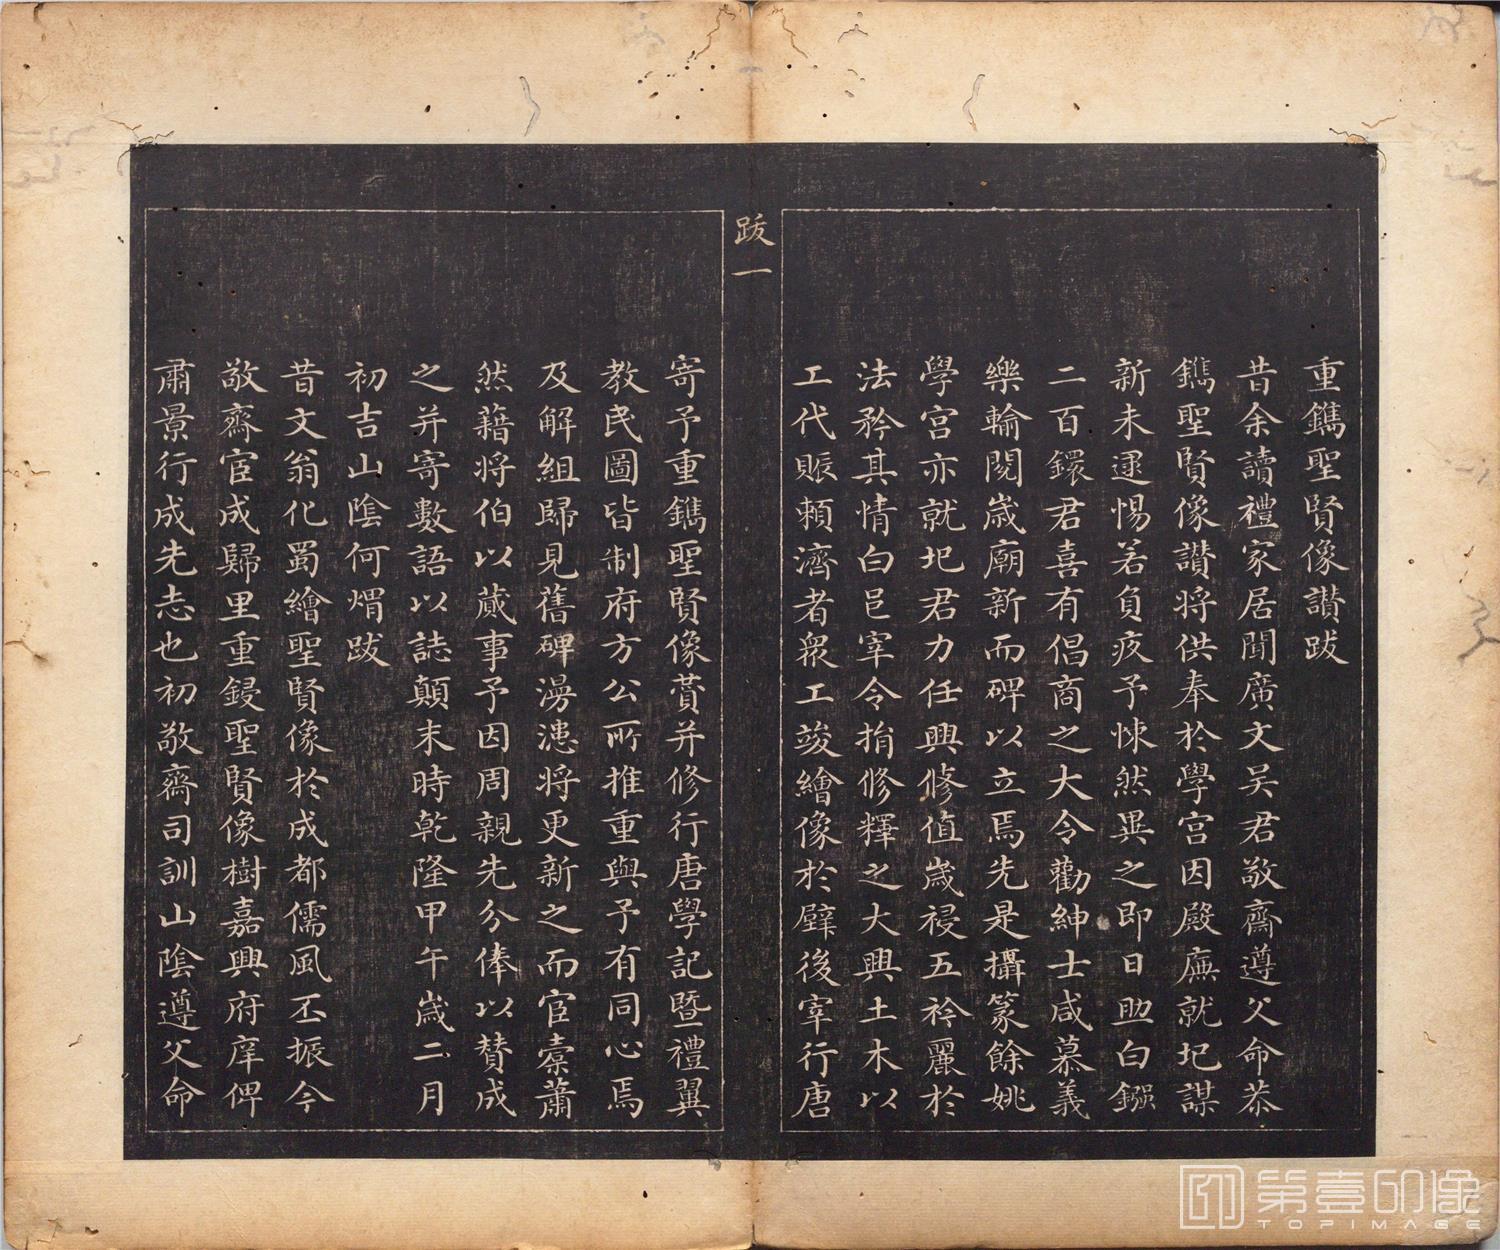 重鐫聖賢像讃跋
昔余讀禮家居聞廣文吴君敬齋遵父命恭
鐫聖賢像讃将供奉於學宫因殿廡就圯謀
新未逮惕若負疚予悚然異之即日助白鏹
二百鐶君喜有倡商之大令勸紳士咸慕義
樂輸閲歲廟新而碑以立焉先是攝篆餘姚
學宫亦就圯君力任興修值歲祲五袊麗於
法矜其情白邑宰令捐修釋之大興土木以
工代賑頼濟者衆工竣繪像於壁後宰行唐
跋一
寄予重鐫聖賢像蕡并修行唐學記暨禮翼
教民圖皆制府方公所推重與予有同心焉
及解組歸見舊碑漫漶将更新之而官橐蕭
然藉将伯以蕆事予因周親先分俸以賛成
之并寄數語以誌顛末時乾隆甲午歲二月
初吉山陰何煟跋
昔文翁化蜀繪聖賢像於成都儒風丕振今
敬齋宦成歸里重鋟聖賢像樹嘉興府庠俾
肅景行成先志也初敬齋司訓山陰遵父命
第壹印像
TOPIMAGE